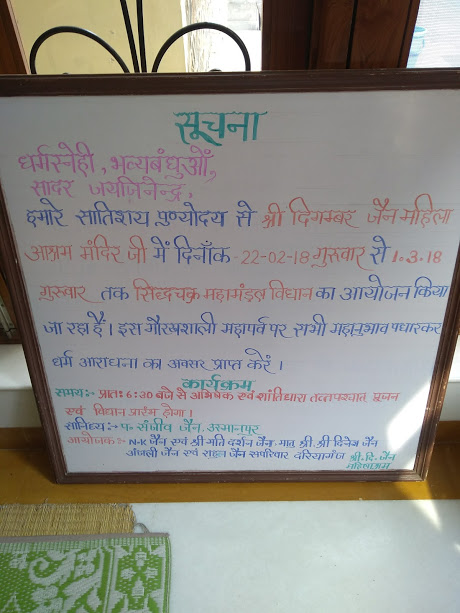 सूचना
धर्मस्नेही, भव्यबंधुओं,
सादर जयजिनेन्द्र,
हमारे सातिशय पुण्योदय से श्री दिगम्बर जैन महिला
आश्रम मंदिर जी में दिनाँक -22-02-18 गुरुवार से 1.3.18
गुरुवार तक सिद्धचक्र महामंडल विधान का आयोजन किया
जा रहा है। इस गौरवशाली महापर्व पर सभी महानुभाव पधारकर
धर्म आराधना का अवसर प्राप्त करें।
कार्यक्रम
समय:- प्रातः 6:30 बजे से अभिषेक एवं शांतिधारा तत्पश्चात् पूजन
एवं विधान प्रारंभ होगा।
सानिध्य:- प. संजीव जैन, उस्मानपुर
आयोजक:- N.K जैन एवं श्रीमति दर्शन जैन, श्री दिनेश जैन
अंजली जैन एवं राहुल जैन सपरिवार दरियागंज
श्री. दि. जैन